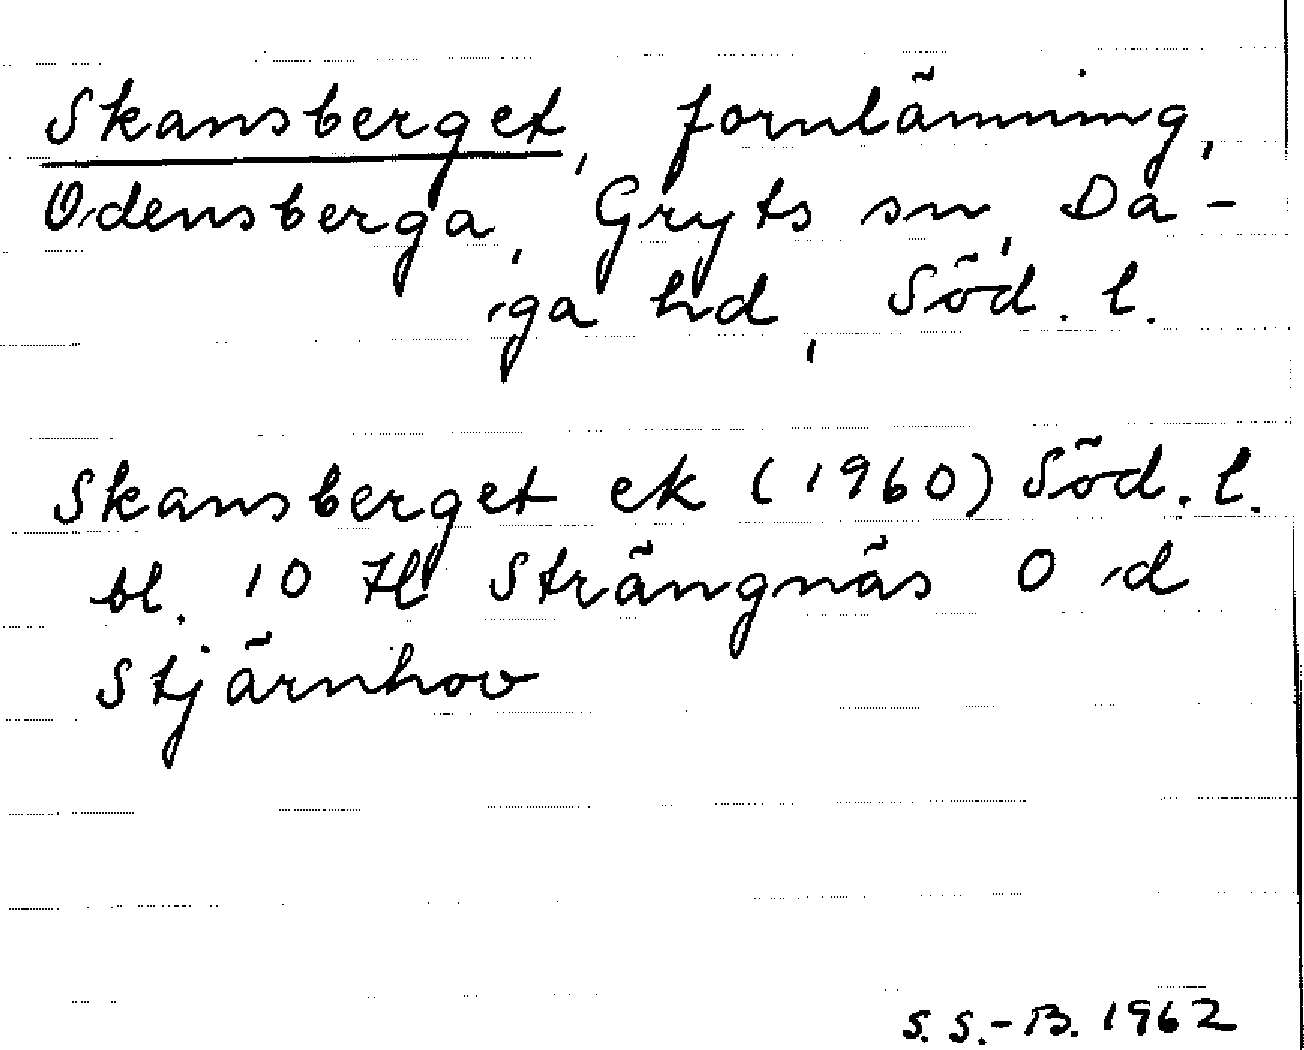 Skansberget, fornlämning,
Odensberga, Gryts sn, Da-
ga hd, Söd. l.
Skansberget ek (1960) Söd. l.
bl. 10 H Strängnäs O d
Stjärnhov
S. S.-B. 1962